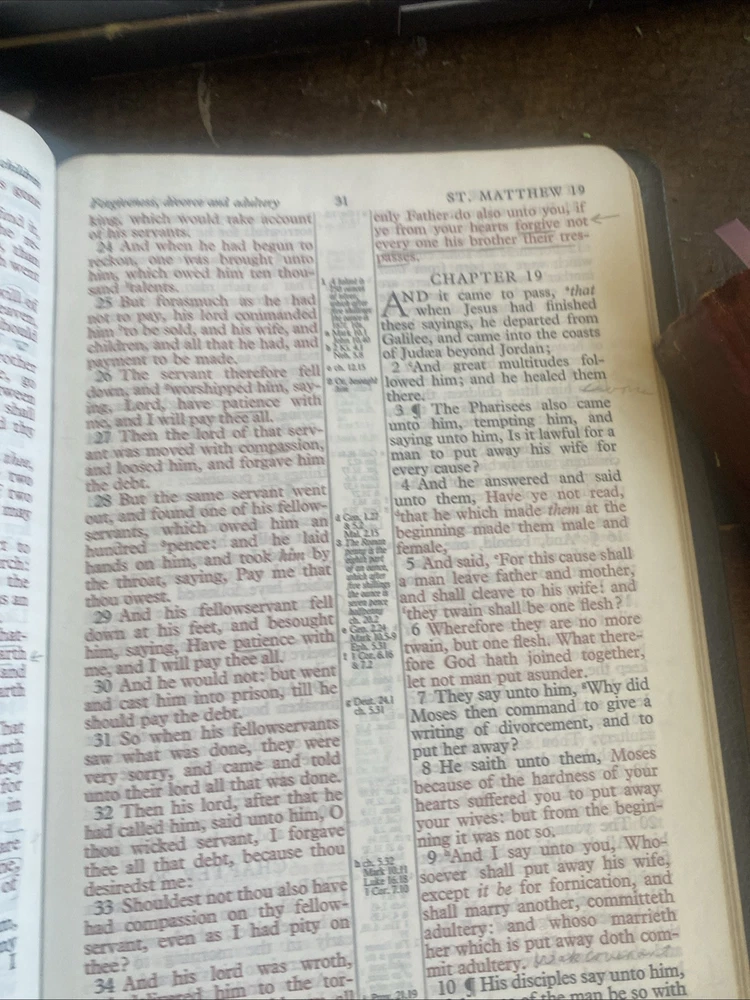 Forgiveness, divorce and adultery 31 ST. MATTHEW 19
king, which would take account
of his servants.
24 And when he had begun to
reckon, one was brought unto
him, which owed him ten thou-
sand talents.
25 But forasmuch as he had
not to pay, his lord commanded
him to be sold, and his wife, and
children, and all that he had, and
payment to be made.
26 The servant therefore fell
down, and worshipped him, say-
ing, Lord, have patience with
me, and I will pay thee all.
27 Then the lord of that serv-
ant was moved with compassion,
and loosed him, and forgave him
the debt.
28 But the same servant went
out, and found one of his fellow-
servants, which owed him an
hundred pence: and he laid
hands on him, and took him by
the throat, saying, Pay me that
thou owest.
29 And his fellowservant fell
down at his feet, and besought
him, saying, Have patience with
me, and I will pay thee all.
30 And he would not: but went
and cast him into prison, till he
should pay the debt.
31 So when his fellowservants
saw what was done, they were
very sorry, and came and told
unto their lord all that was done.
32 Then his lord, after that he
had called him, said unto him, O
thou wicked servant, I forgave
thee all that debt, because thou
desiredst me:
33 Shouldest not thou also have
had compassion on thy fellow-
servant, even as I had pity on
thee?
34 And his lord was wroth,
delivered him to the tor-
ch. 12.15
d Gen. 1.27
& 5.2
Mal. 2.15
ch. 20.2
e Gen. 2.24
Mark 10.5-9
Eph. 5.31
f 1 Cor. 6.16
& 7.2
g Deut. 24.1
ch. 5.31
h ch. 5.32
Mark 10.11
Luke 16.18
1 Cor. 7.10
Prov. 21.19
enly Father do also unto you, if
ye from your hearts forgive not
every one his brother their tres-
passes.
CHAPTER 19
AND it came to pass, that
when Jesus had finished
these sayings, he departed from
Galilee, and came into the coasts
of Judæa beyond Jordan;
2 And great multitudes fol-
lowed him; and he healed them
there.
3 ¶ The Pharisees also came
unto him, tempting him, and
saying unto him, Is it lawful for a
man to put away his wife for
every cause?
4 And he answered and said
unto them, Have ye not read,
that he which made them at the
beginning made them male and
female,
5 And said, For this cause shall
a man leave father and mother,
and shall cleave to his wife: and
they twain shall be one flesh?
6 Wherefore they are no more
twain, but one flesh. What there-
fore God hath joined together,
let not man put asunder.
7 They say unto him, Why did
Moses then command to give a
writing of divorcement, and to
put her away?
8 He saith unto them, Moses
because of the hardness of your
hearts suffered you to put away
your wives: but from the begin-
ning it was not so.
9 And I say unto you, Who-
soever shall put away his wife,
except it be for fornication, and
shall marry another, committeth
adultery: and whoso marrieth
her which is put away doth com-
mit adultery.
10 ¶ His disciples say unto him,
of the man be so with